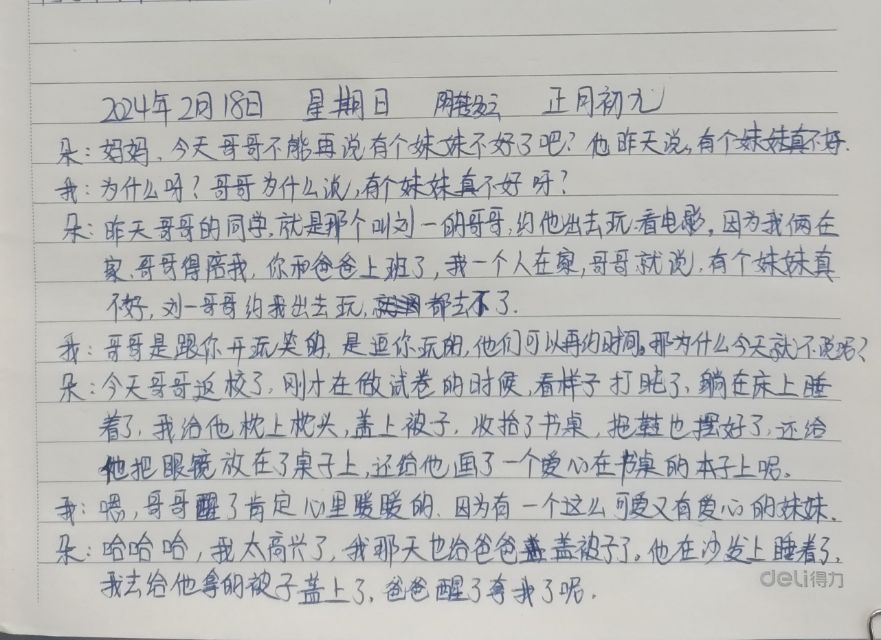 2024年2月18日 星期日 阴转多云 正月初九
朵:妈妈,今天哥哥不能再说有个妹妹不好了吧?他昨天说,有个妹妹真不好.
我:为什么呀?哥哥为什么说,有个妹妹真不好呀?
朵:昨天哥哥的同学,就是那个叫刘一的哥哥,约他出去玩,看电影,因为我俩在
家,哥哥得陪我,你和爸爸上班了,我一个人在家,哥哥就说,有个妹妹真
不好,刘一哥哥约我出去玩,都去不了.
我:哥哥是跟你开玩笑的,是逗你玩的,他们可以再约时间。那为什么今天就不说呢?
朵:今天哥哥返校了,刚才在做试卷的时候,看样子打盹了,躺在床上睡
着了,我给他枕上枕头,盖上被子,收拾了书桌,把鞋也摆好了,还给
他把眼镜放在了桌子上,还给他画了一个爱心在书桌的本子上呢。
我:嗯,哥哥醒了肯定心里暖暖的,因为有一个这么可爱又有爱心的妹妹.
朵:哈哈哈,我太高兴了,我那天也给爸爸盖被子了,他在沙发上睡着了,
我去给他拿的被子盖上了,爸爸醒了夸我了呢.
deli得力